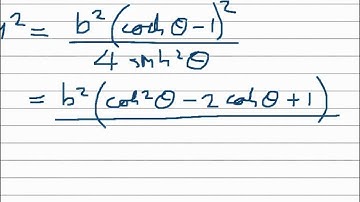 y² = b²(cosh θ − 1)² / 4 sinh²θ
= b²(cosh²θ − 2 cosh θ + 1)